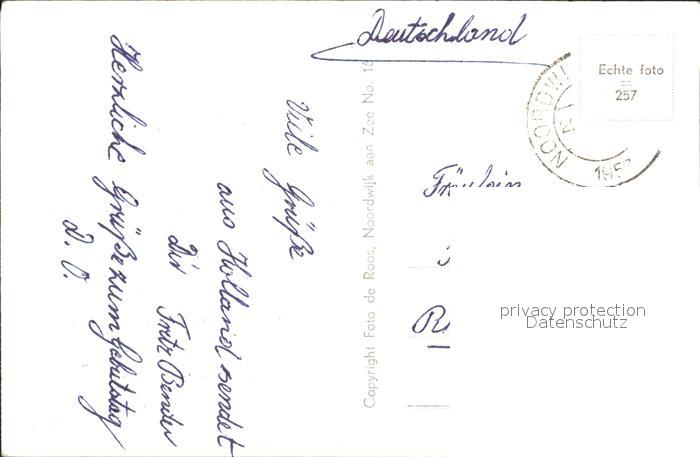 Deutschland
Viele Grüße
aus Holland sendet
Dir Fritz Bender
Herzliche Grüße zum Geburtstag
D. O.
Copyright Foto de Roos, Noordwijk aan Zee No. 16
Echte foto
=
257
NOORDWI
195
Fräulein
privacy protection
Datenschutz